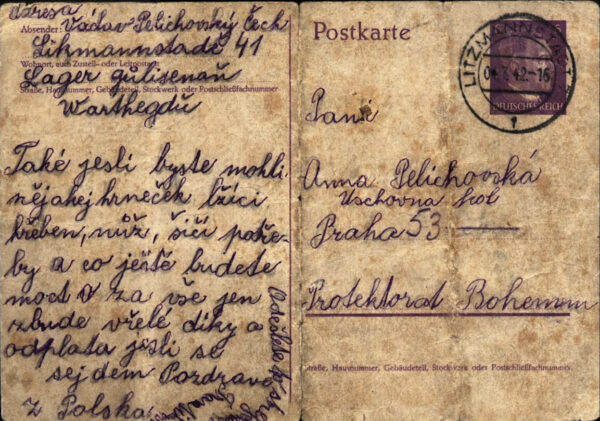 Adresa
Absender: Václav Pelichovský Čech
Likmannstadě 41
Wohnort, auch Zustell- oder Leitpostamt
Lager gůlisenaň
Straße, Hausnummer, Gebäudeteil, Stockwerk oder Postschließfachnummer
Warthegdů
Také jesli byste mohli
nějakej hrneček lžíci
hřeben, nůž, šicí potře-
by a co ještě budete
moct a za vše jen
zbude vřelé díky a
odplata jesli se
sejdem Pozdrav
z Polska
Postkarte
LITZMANNSTADT
42-16
DEUTSCHES REICH
Paní
Anna Pelichovská
Uschovna
Praha 53
Protektorat Bohemm
Straße, Hausnummer, Gebäudeteil, Stockwerk oder Postschließfachnummer